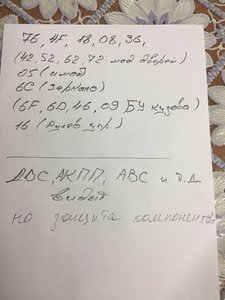 76, 4F, 18, 08, 36,
(42, 52, 62, 72 мод дверей)
05 (имоб)
6C (зеркало)
(6F, 6D, 46, 09 БУ кузова)
16 (рулев упр)
ДВС, АКПП, АВС и т.д
видет
но защита компонентов